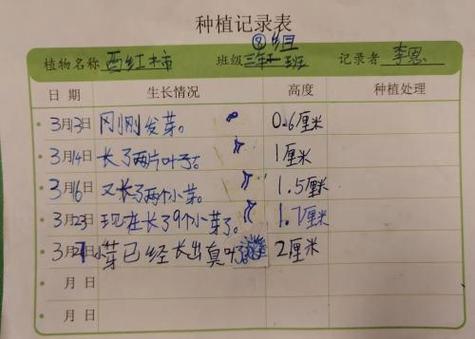 种植记录表
⑧组
植物名称 西红柿 班级 三年1班 记录者 李恩
日 期 生长情况 高度 种植处理
3月13日 刚刚发芽。 0.6厘米
3月14日 长了两片叶子。 1厘米
3月16日 又长了两个小芽。 1.5厘米
3月23日 现在长了9个小芽了。 1.7厘米
3月27日 小芽已经长出真叶了 2厘米
月 日
月 日